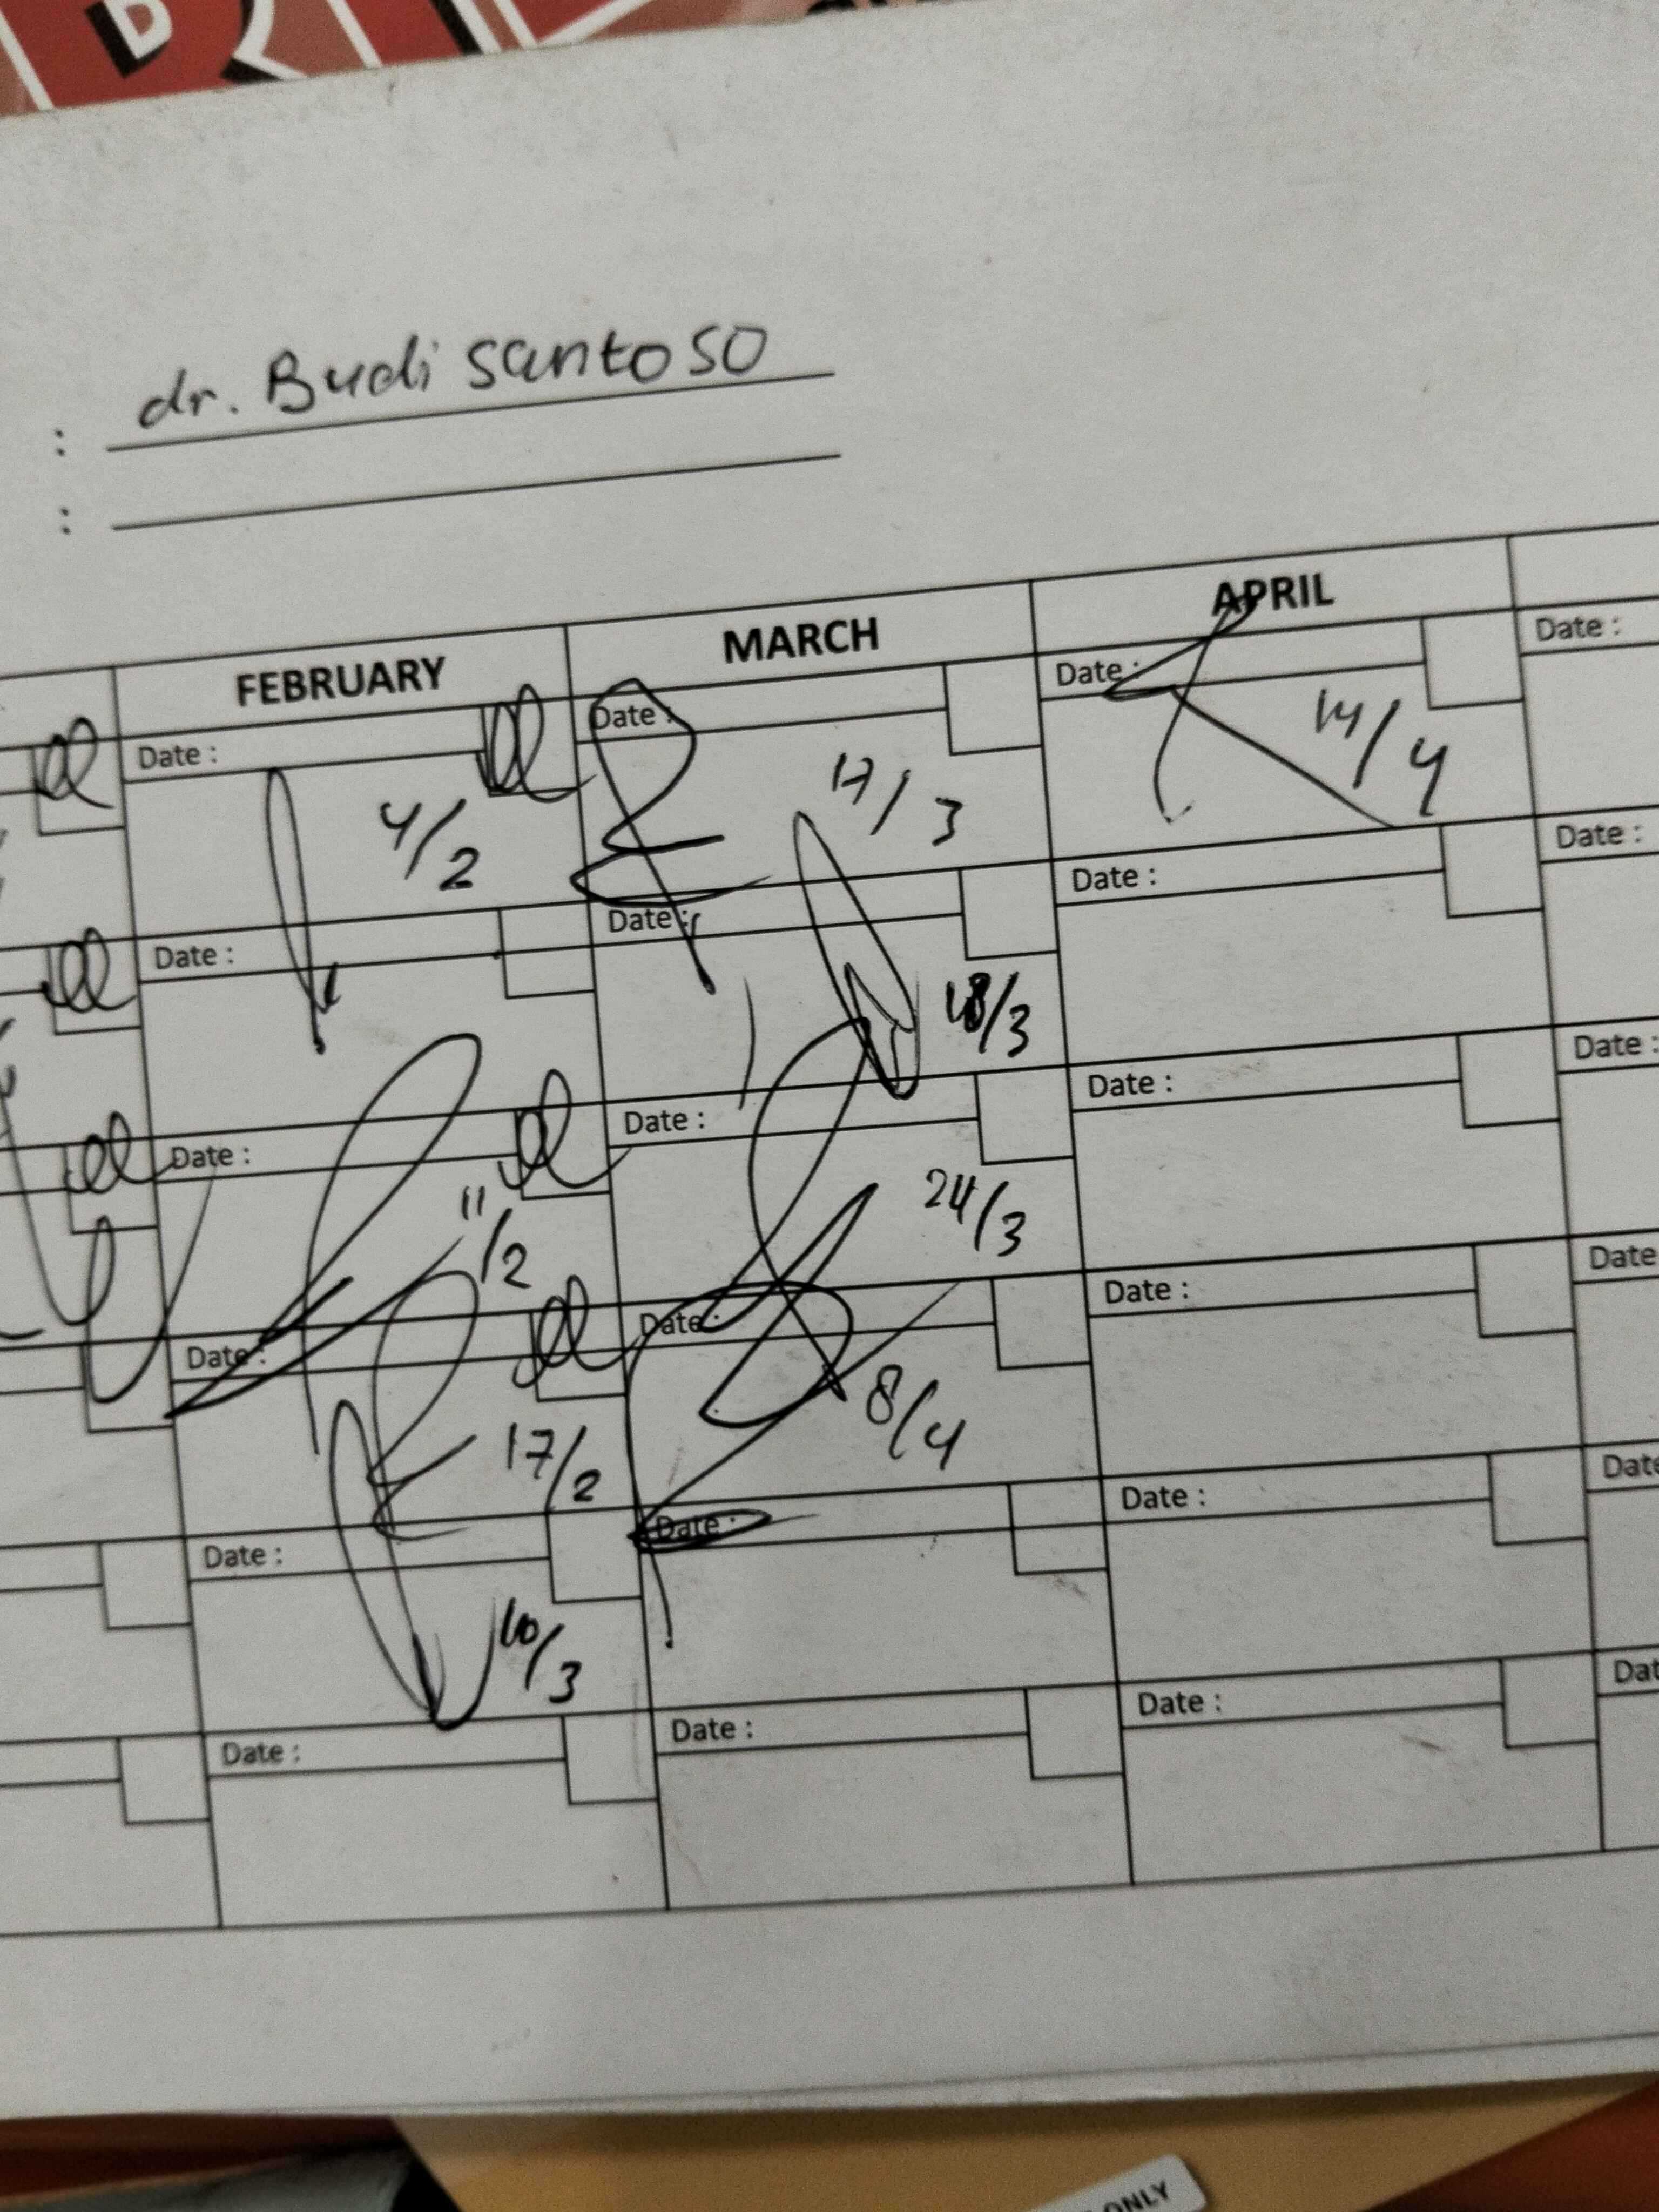 : dr. Budi Santoso
:
FEBRUARY MARCH APRIL
Date : Date : Date : Date :
4/2 17/3 14/4
Date : Date : Date : Date :
18/3
Date : Date : Date : Date :
11/2 24/3
Date : Date : Date : Date
17/2 8/4
Date : Date : Date : Date
10/3
Date : Date : Date : Dat
ONLY